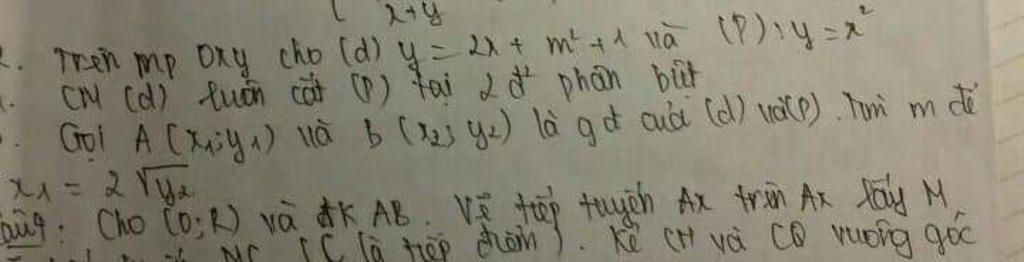 x+y
2. Trên mp Oxy cho (d) y = 2x + m² + 1 và (P): y = x²
1. CM (d) luôn cắt (P) tại 2 đ² phân biệt
Gọi A (x₁; y₁) và B (x₂; y₂) là gđ của (d) và (P). Tìm m để
x₁ = 2√y₂
Cho (O; R) và đk AB. Vẽ tiếp tuyến Ax trên Ax lấy M
MC (C là tiếp điểm). Kẻ CH và CQ vuông góc